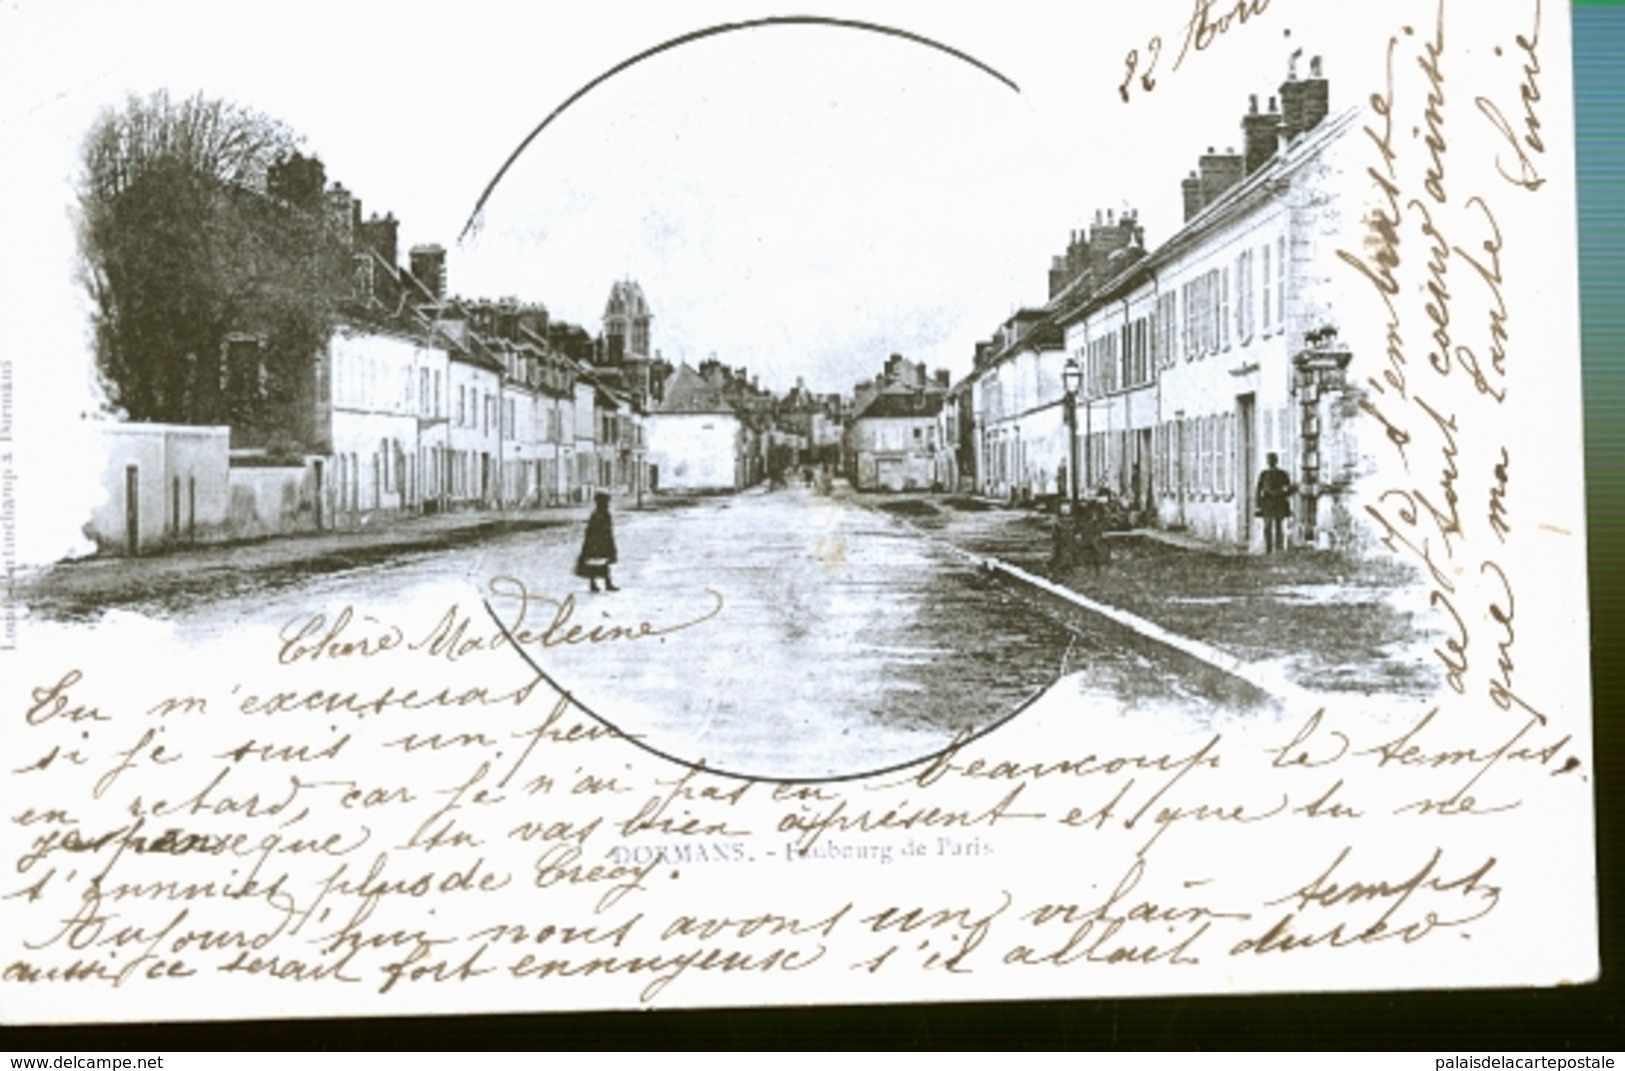 22
Chère Madeleine.
Tu m'excuseras
si je suis un peu
en retard, car je n'ai pas eu beaucoup le temps,
je pense que tu vas bien à présent et que tu ne
t'ennuies plus de Crécy.
DORMANS. - Faubourg de Paris
Aujourd'hui nous avons un vilain temps
aussi ce serait fort ennuyeux s'il allait durer.
Je t'embrasse
de tout coeur ainsi
que ma tante
Lucie
Dormans
delcampe.net
palaisdelacartepostale